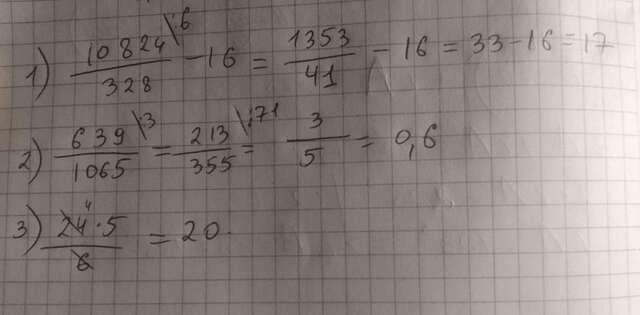 1) 10824\6/328 - 16 = 1353/41 - 16 = 33-16=17
2) 639\3/1065 = 213\71/355 = 3/5 = 0,6
3) 24 4·5/6 = 20